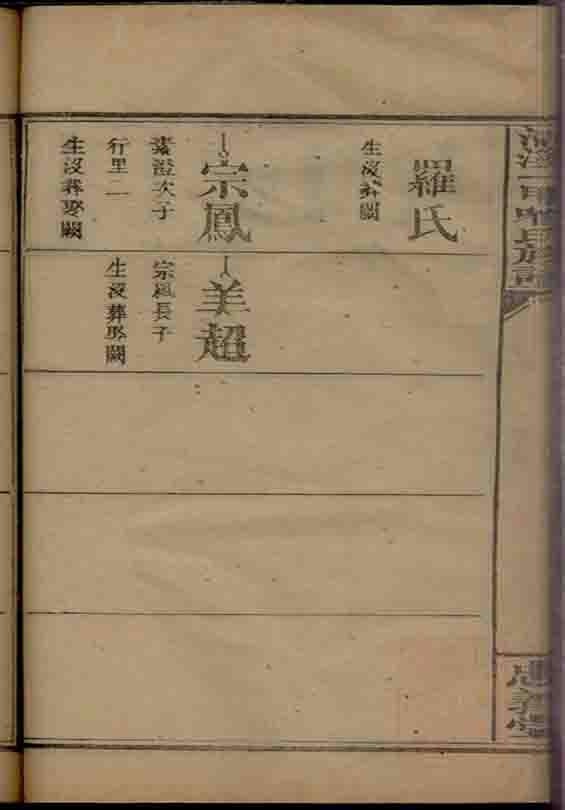 氏族譜
忠義堂
羅氏
生沒葬闕
宗鳳
澄次子
行里二
生沒葬娶闕
美超
宗鳳長子
生沒葬娶闕